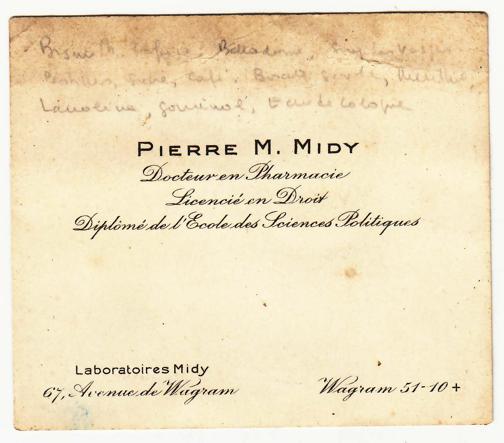 Belladone,
Pastilles, sucre, café,
Lanoline, goménol, Eau de Cologne
PIERRE M. MIDY
Docteur en Pharmacie
Licencié en Droit
Diplômé de l'Ecole des Sciences Politiques
Laboratoires Midy
67, Avenue de Wagram
Wagram 51-10 +